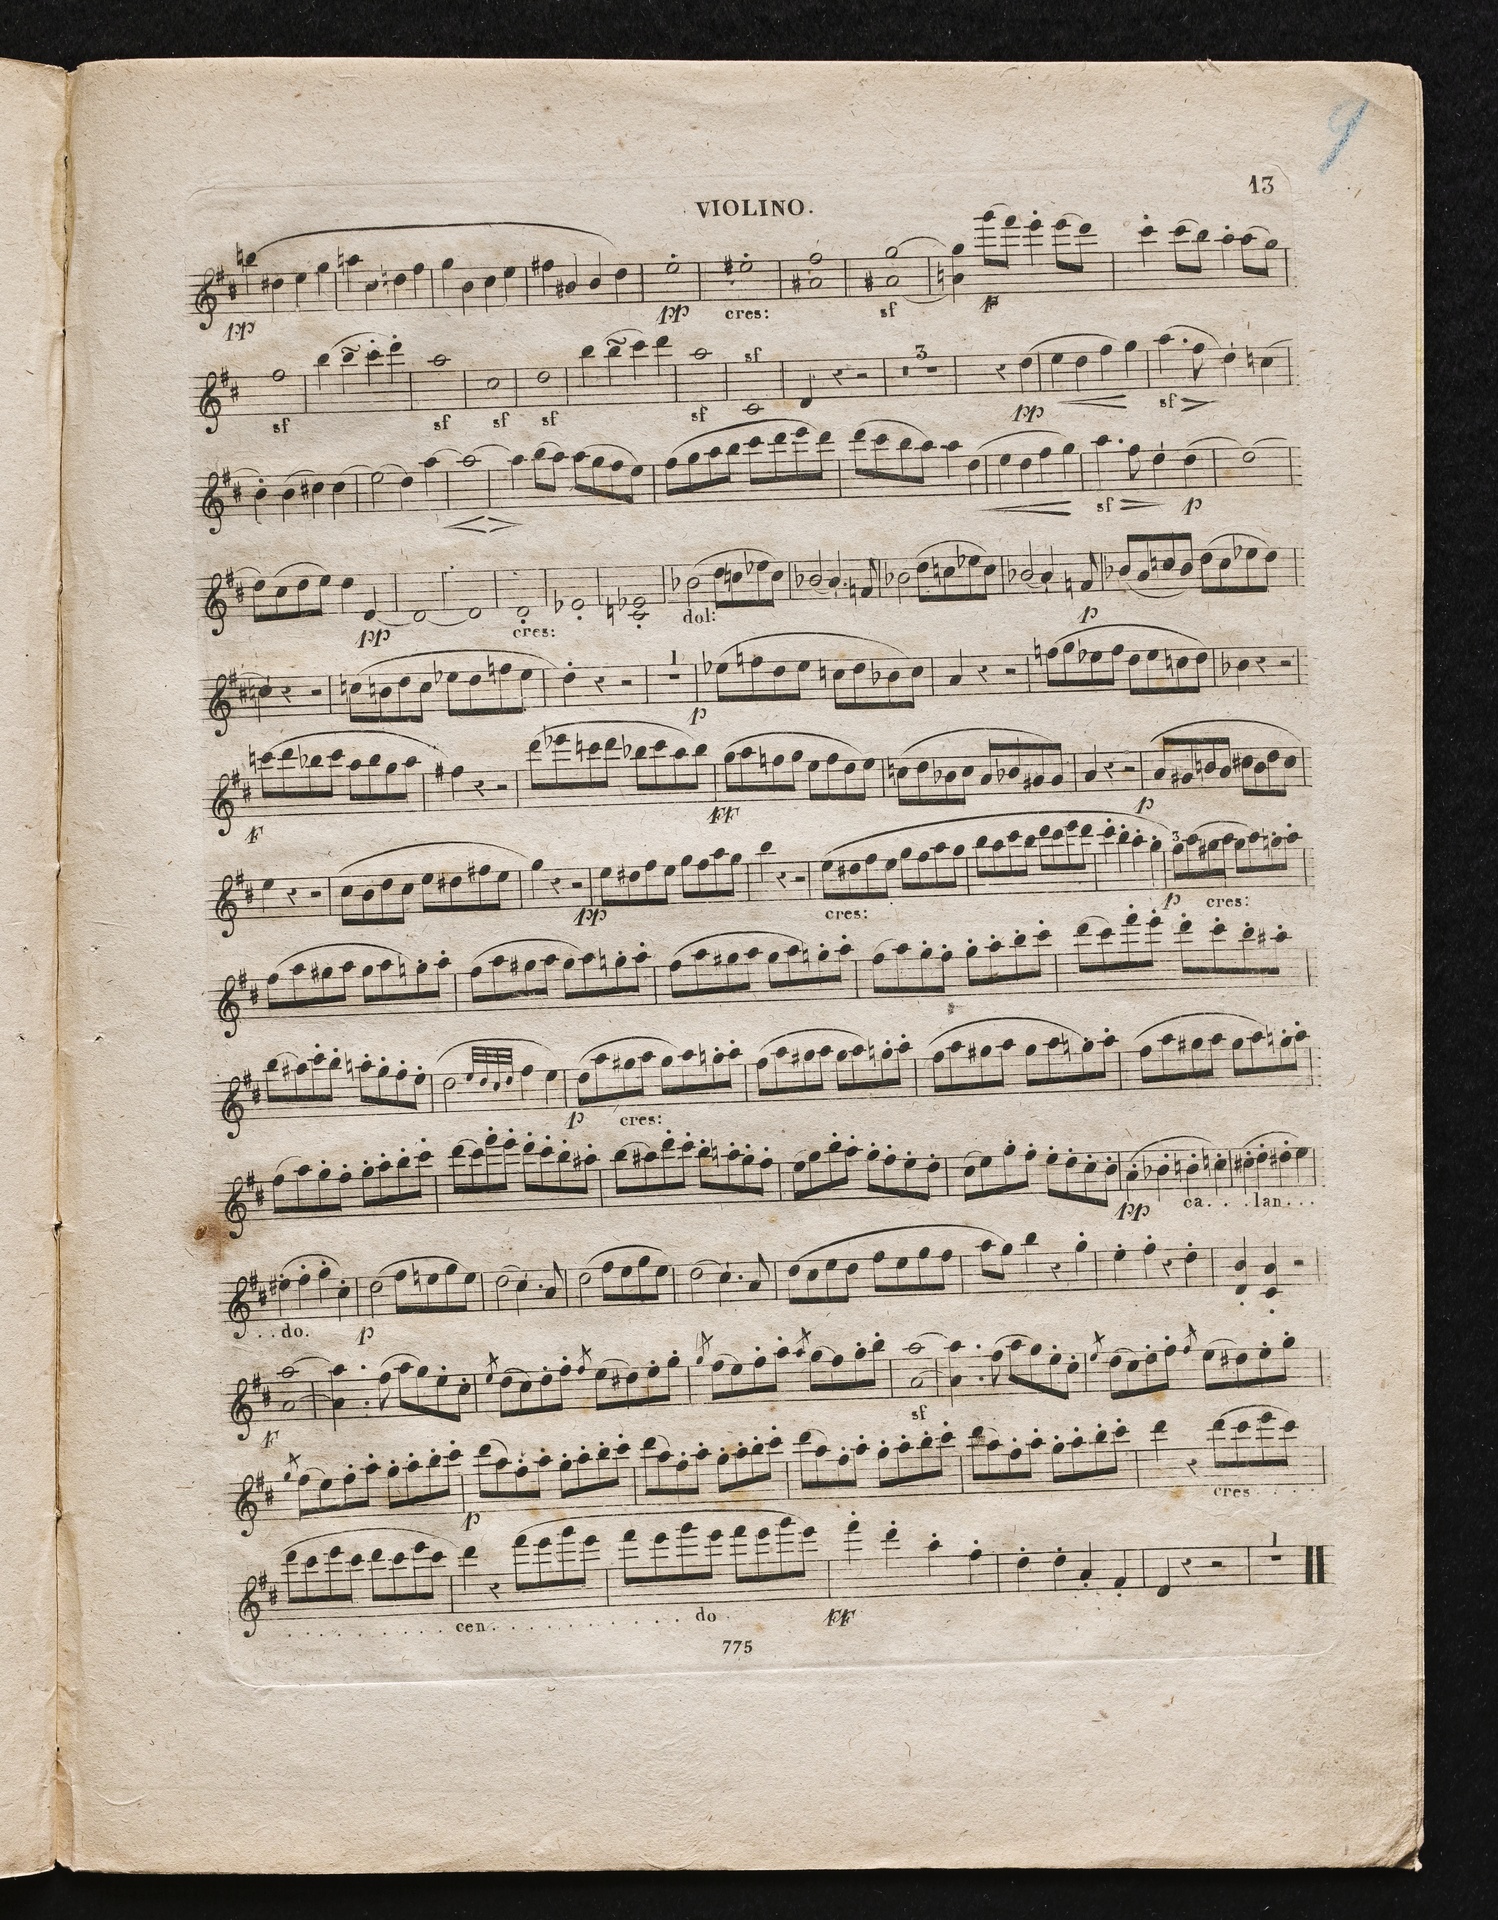 9
13
VIOLINO.
pp pp cres: sf F
sf sf sf sf sf sf 3 pp sf
sf p
pp cres: dol: p
1 p
F FF p
pp cres: p 3 cres:
p cres:
pp ca. . .lan. . .
. .do. p
F sf
p cres . . . .
. . . . . . . . . cen. . . . . . . . . . . do . FF 1
775